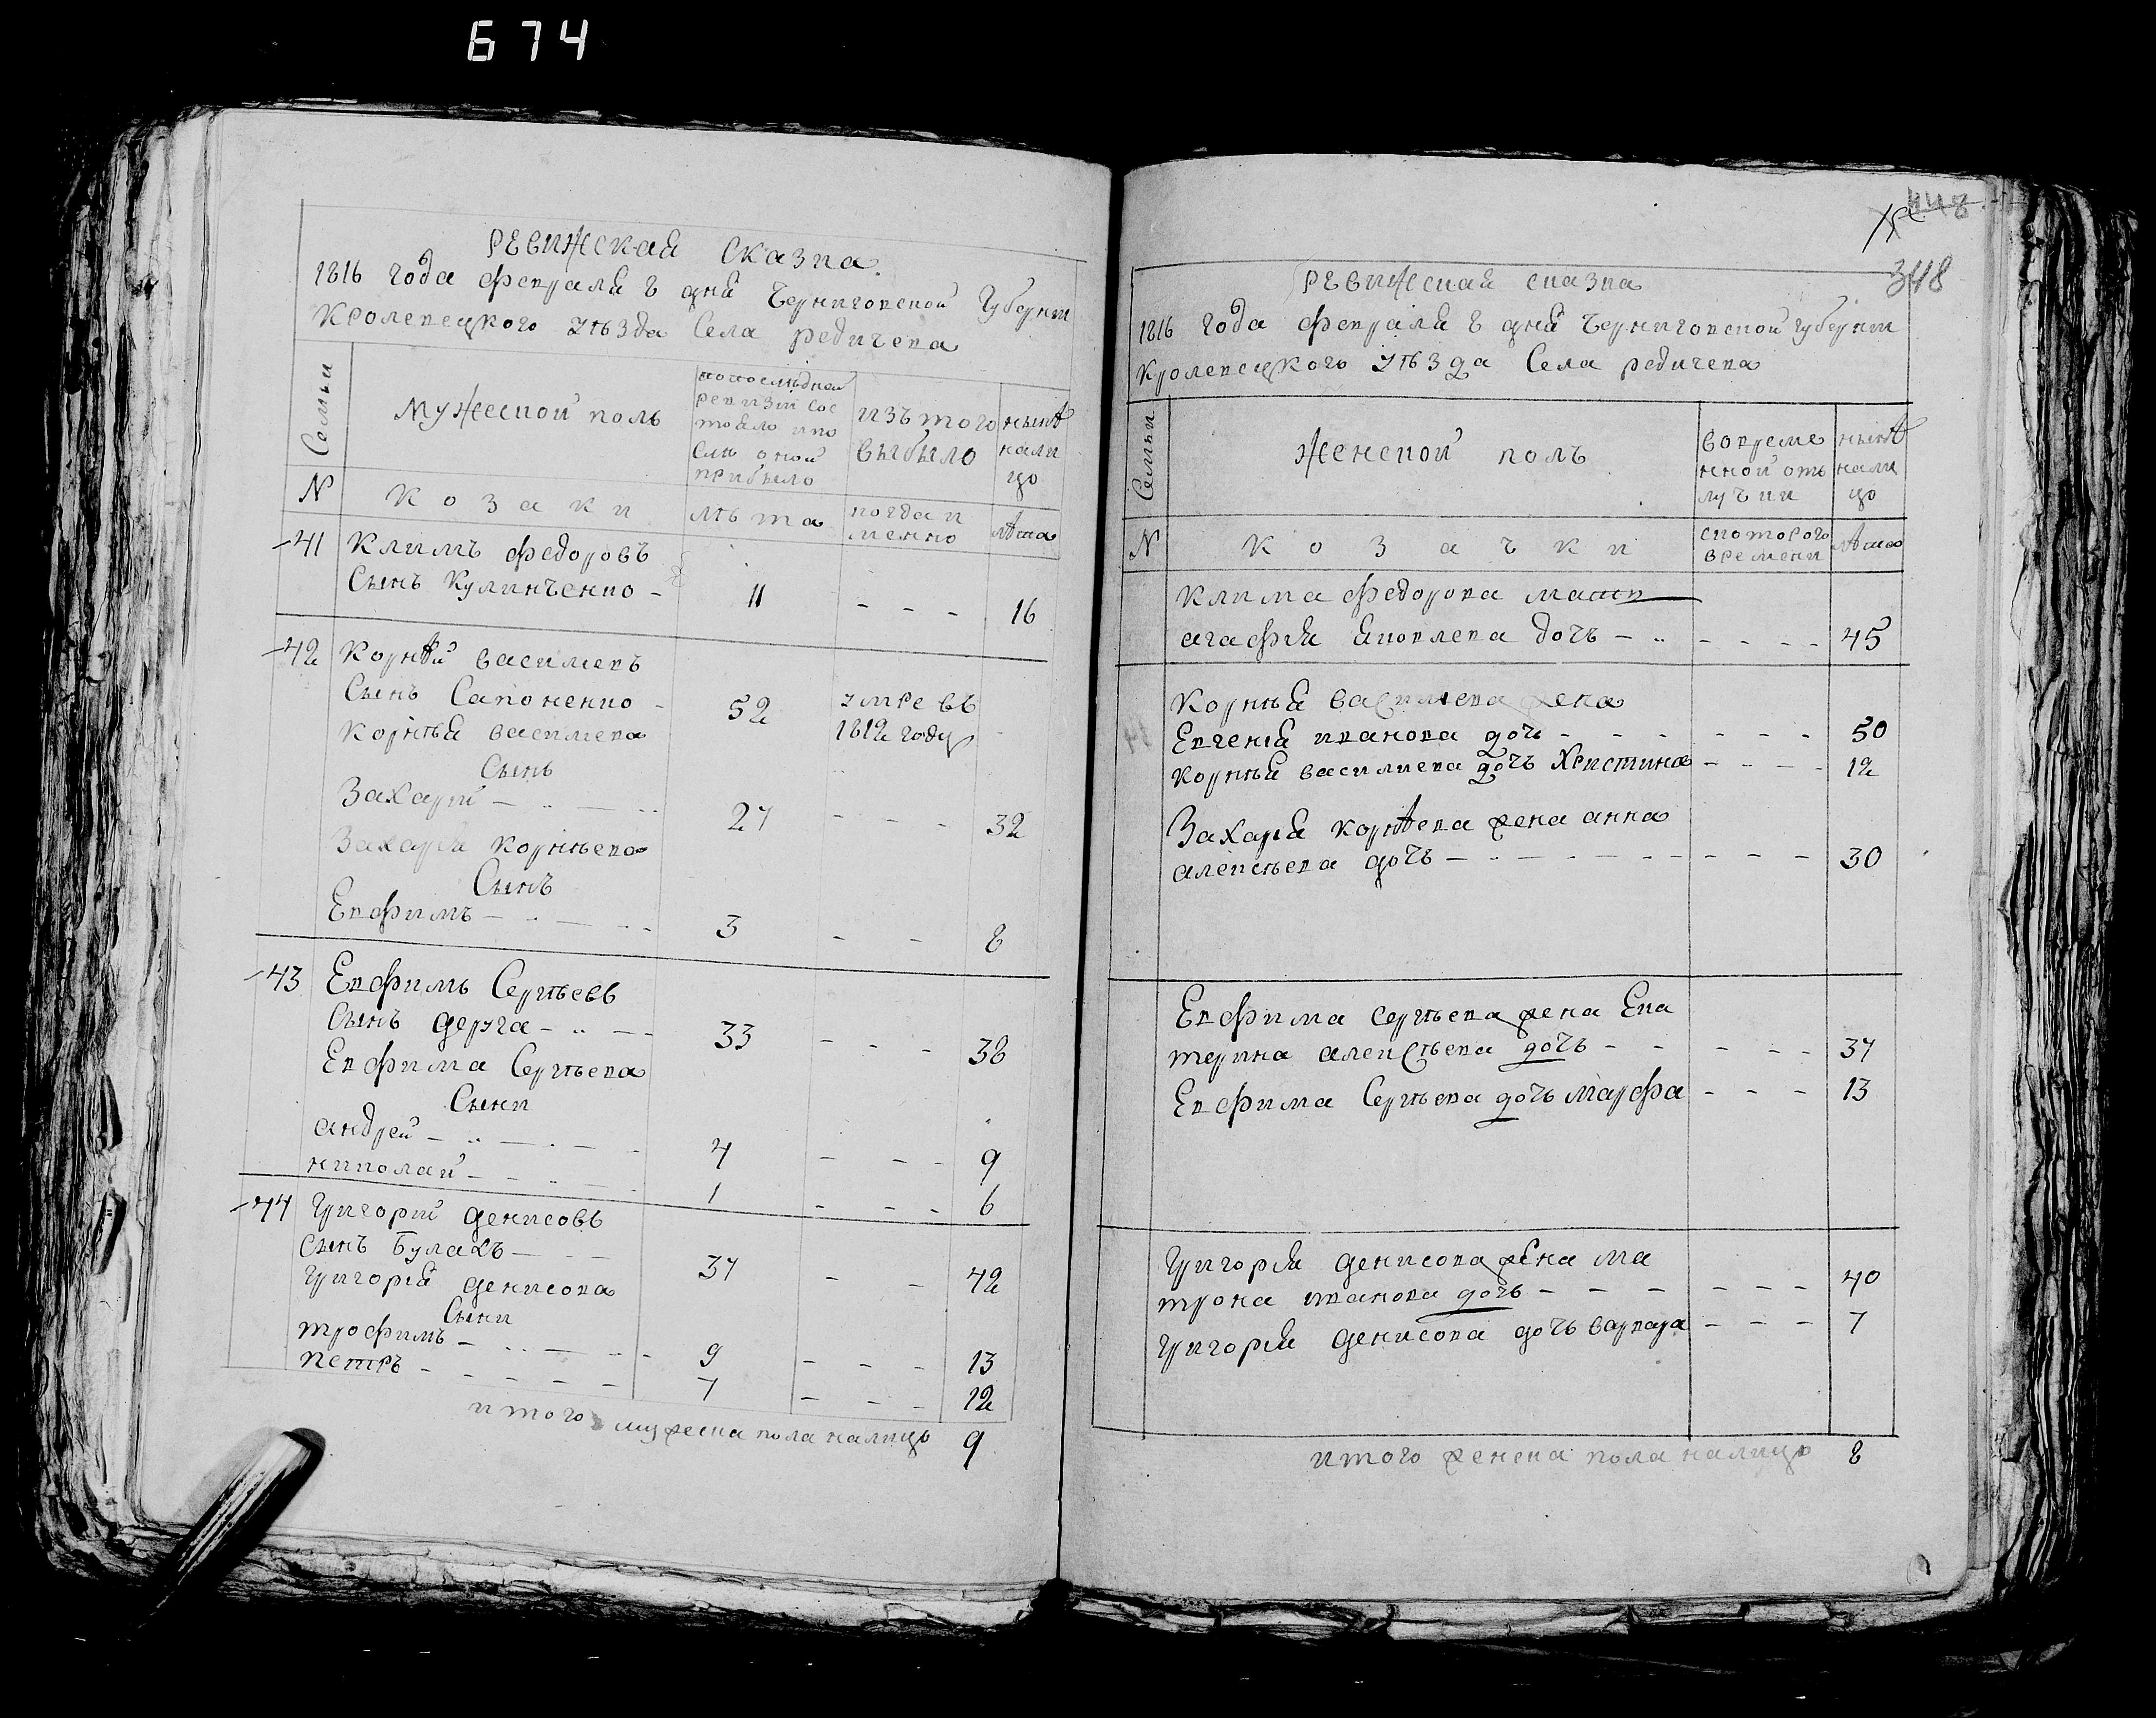 674
Ревижская сказка
1816 года февраля 8 дня Черниговской Губернии
Кролевецкого уѣзда Села редичева
Семьи
Мужеской полъ
попослѣдней
ревизiи сос
тояло и по
слѣ оной
прибыло
изъ того
выбыло
нынѣ
нали
цо
N
козаки
лѣта
когда и
менно
лѣта
41 Климъ федоровъ
Сынъ Кулинченко - 11 - - - 16
42 Корнѣй василиевъ
Сынъ Сапоненко - 52 умре въ
1812 году
Корнѣя василиева
Сынъ
Захарiй - 27 - - - 32
Захарiя корнѣева
Сынъ
Евфимъ - 3 - - 8
43 Евфимъ Сергѣевъ
Сынъ деруга - 33 - - - 38
Евфима Сергѣева
Сыни
андрей - 4 - - - 9
николай - 1 - - - 6
44 Григорiй денисовъ
Сынъ Булахъ - 37 - - 42
Григорiя денисова
Сыни
трофимъ - 9 - - - 13
петръ - 7 - - - 12
итого мужеска пола налицо 9
448
348
Ревижская сказка
1816 года февраля 8 дня Черниговской губернии
Кролевецкого уѣзда Села редичева
Семьи
Женской полъ
вовреме
нной отъ
лучии
нынѣ
нали
цо
N
козачки
скоторого
времени
лѣта
Клима федорова мать
агафiя яковлева дочь - - - - - 45
Корнѣя василиева жена
Евгенiя иванова дочь - - - - - 50
Корнѣя василиева дочь Христина - - - - 12
Захарiя корнѣева жена анна
алексѣева дочь - - - - - 30
Евфима сергѣева жена Ека
терина алексѣева дочь - - - - - 37
Евфима Сергѣева дочь марфа - - - 13
Григорiя денисова жена ма
трона иванова дочь - - - - - 40
Григорiя денисова дочь варвара - - - 7
итого женска пола налицо 8